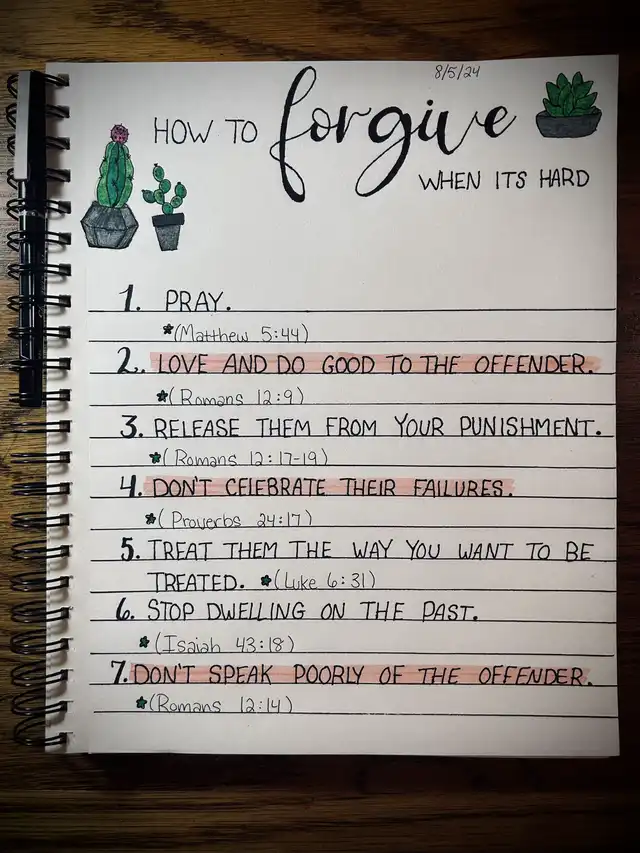 8/5/24
HOW TO forgive
WHEN ITS HARD
1. PRAY.
*(Matthew 5:44)
2. LOVE AND DO GOOD TO THE OFFENDER.
*(Romans 12:9)
3. RELEASE THEM FROM YOUR PUNISHMENT.
*(Romans 12:17-19)
4. DON'T CELEBRATE THEIR FAILURES.
*(Proverbs 24:17)
5. TREAT THEM THE WAY YOU WANT TO BE
TREATED. *(Luke 6:31)
6. STOP DWELLING ON THE PAST.
*(Isaiah 43:18)
7. DON'T SPEAK POORLY OF THE OFFENDER.
*(Romans 12:14)